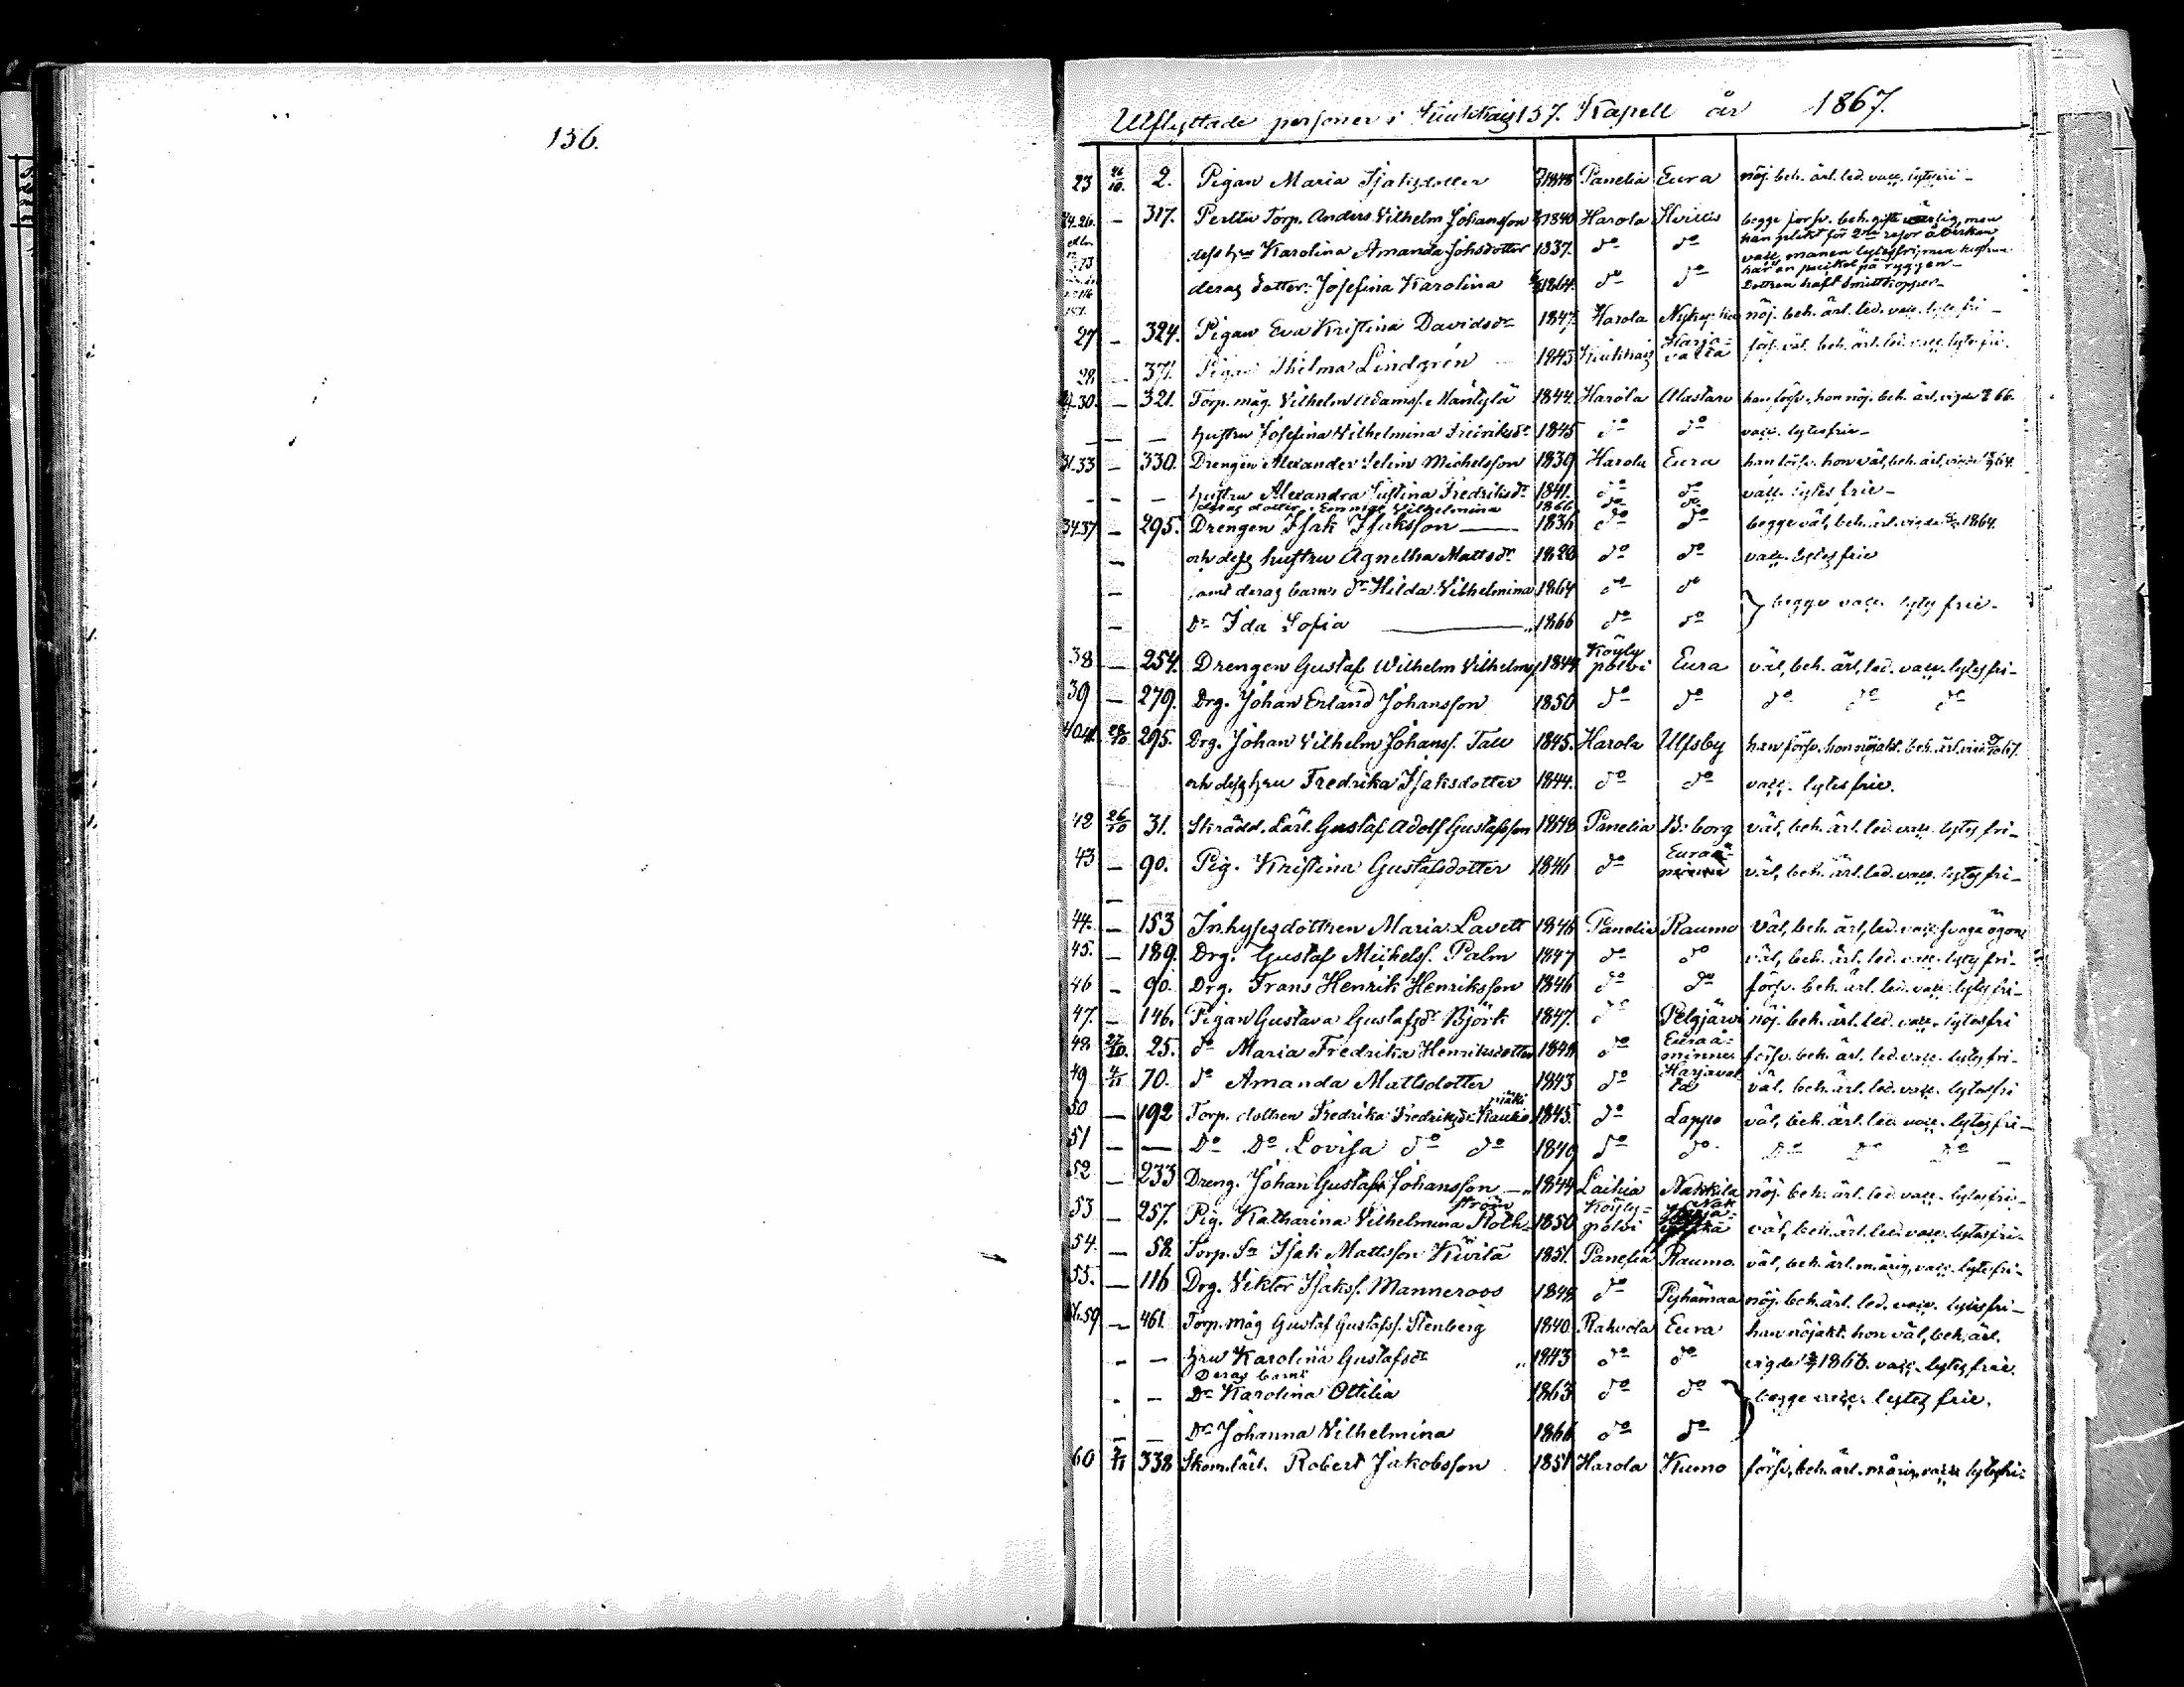 136.
Utflyttade personer i Kiukhais 137. Kapell år 1867.
23 26/10. 2. Pigan Maria Isaksdotter 1848 Panelia Eura nöj. beh. ärl. led. vacc. lytesfri -
24-26. — 317. Torp. Anders Vilhelm Johansson 1840 Harola begge förfv. beh. men
dess hru Karolina Amanda Johsdotter 1837. do do vacc. mannen lytesfri, men hustrun
har en puckel på ryggen -
deras dotter: Josefina Karolina 1864. do do Dottren haft smittkoppor -
27 — 324. Pigan Eva Kristina Davidsdr 1847. Harola nöj. beh. ärl. led. vacc. lytesfri -
28 — 371. Pigan Thilma Lindgrén 1843 Kiukhais Harja-valta förfv. beh. ärl. led. vacc. lytesfri.
29-30. — 321. Torp. måg. Vilhelm Adamss. Mäntylä 1844. Harola Alastaro han förfv., hon nöj. beh. ärl. vigde 66.
— — — hustru Josefina Vilhelmina Fredriksdr 1845 do do vacc. lytesfrie -
31.33 — 330. Drengen Alexander Selim Michelsson 1839 Harola Eura han förfv. hon väl, beh. ärl. vigde 64.
- - — hustru Alexandra Justina Fredriksdr 1841. do do vacc. lytesfrie -
deras dotter. Vilhelmina 1866 do do
34.37 — 295. Drengen Isak Isaksson — 1836 do do begge väl, beh. ärl. vigde 1864.
— och dess hustru Agnetha Mattsdr 1828 do do vacc. lytesfrie
— samt deras barn: dr Hilda Vilhelmina 1864 do do
} begge vacc. lytesfrie -
— Dr Ida Sofia — 1866 do do
38 — 254. Drengen Gustaf Wilhelm Vilhelms. 1844 Köyly polvi Eura väl, beh. ärl, led. vacc. lytesfri -
39 — 279. Drg. Johan Erland Johansson 1850 do do do do do
40.41. 28/10 295. Drg. Johan Vilhelm Johanss. Tau 1845. Harola Ulfsby han förfv. hon nöjakt. beh. ärl. vigde 67.
och dess hru Fredrika Isaksdotter 1844. do do vacc. lytesfrie.
42 26/10 31. Skrädd. Lärl. Gustaf Adolf Gustafsson 1848 Panelia B:borg väl, beh. ärl. led. vacc. lytesfri -
43 — 90. Pig. Kristina Gustafsdotter 1846 do Euraå- väl, beh. ärl. led. vacc. lytesfri -
—
44. — 153 Inhysesdottren Maria Lavett 1846 Panelia Raumo väl, beh. ärl, led. vacc. svaga ögon
45. — 189. Drg. Gustaf Michelss. Palm 1847 do do väl, beh. ärl. led. vacc. lytesfri -
46 — 90. Drg. Frans Henrik Henriksson 1846 do do förfv. beh. ärl. led. vacc. lytesfri -
47. — 146. Pigan Gustava Gustafsdr Björk 1847. do Pelgjärvi nöj. beh. ärl. led. vacc. lytesfri
48 27/10. 25. do Maria Fredrika Henriksdotter 1848 do Euraå-minnes förfv. beh. ärl. led. vacc. lytesfri -
49 4/11 70. do Amanda Mattsdotter 1843 do Harjaval ta väl. beh. ärl. led. vacc. lytesfri
50 — 192 Torp. dottren Fredrika Fredriksdr Kauko mäki 1845. do Lappo väl, beh. ärl. led. vacc. lytesfri -
51 — — Do Do Lovisa do do 1849 do do do do do
52 — 233 Dreng. Johan Gustaf Johansson — 1844 Laihia Nakkila nöj. beh. ärl. led. vacc. lytesfri -
53 — 257. Pig. Katharina Vilhelmina Roth-ström 1850 Köyly-polvi väl, beh. ärl. led. vacc. lytesfri -
54. — 58. Torp. Sn Isak Mattsson Kivilä 1851. Panelia Raumo. väl, beh. ärl. vacc. lytesfri -
55. — 116 Drg. Viktor Isakss. Manneroos 1848 do Pyhämaa nöj. beh. ärl. led. vacc. lytesfri -
56.59 — 461. Torp. måg Gustaf Gustafss. Stenberg 1840 Rahvola Eura han nöjakt. hon väl, beh. ärl.
- — hru Karolina Gustafsdr 1843 do do vigde 1863. vacc. lytesfrie.
Deras barn:
- — Dr Karolina Ottilia 1863 do do } begge vacc. lytesfrie.
— — Dr Johanna Vilhelmina 1866 do do
60 338 Skom. lärl. Robert Jakobsson 1851 Harola Kumo förfv., beh. ärl. vacc. lytesfri -